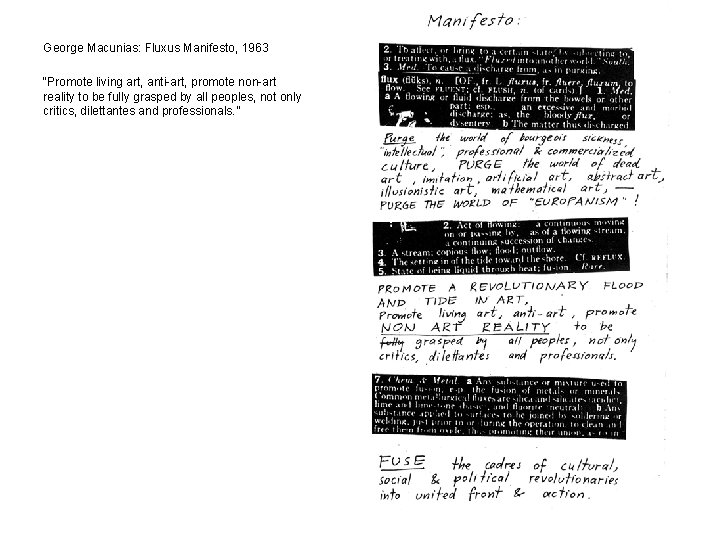 George Macunias: Fluxus Manifesto, 1963
“Promote living art, anti-art, promote non-art
reality to be fully grasped by all peoples, not only
critics, dilettantes and professionals.”
Manifesto:
2. To affect, or bring to a certain state, by subjecting to,
or treating with, a flux. "Fluxed into another world." South.
3. Med. To cause a discharge from, as in purging.
flux (flŭks), n. [OF., fr. L. fluxus, fr. fluere, fluxum, to
flow. See FLUENT; cf. FLUSH, n. (of cards).] 1. Med.
a A flowing or fluid discharge from the bowels or other
part; esp., an excessive and morbid
discharge; as, the bloody flux, or
dysentery. b The matter thus discharged.
Purge the world of bourgeois sickness,
"intellectual", professional & commercialized
culture, PURGE the world of dead
art, imitation, artificial art, abstract art,
illusionistic art, mathematical art, —
PURGE THE WORLD OF "EUROPANISM"!
2. Act of flowing: a continuous moving
on or passing by, as of a flowing stream;
a continuing succession of changes.
3. A stream; copious flow; flood; outflow.
4. The setting in of the tide toward the shore. Cf. REFLUX.
5. State of being liquid through heat; fusion. Rare.
PROMOTE A REVOLUTIONARY FLOOD
AND TIDE IN ART,
Promote living art, anti-art, promote
NON ART REALITY to be
fully grasped by all peoples, not only
critics, dilettantes and professionals.
7. Chem. & Metal. a Any substance or mixture used to
promote fusion, esp. the fusion of metals or minerals.
Common metallurgical fluxes are silica and silicates (acidic),
lime and limestone (basic), and fluorite (neutral). b Any
substance applied to surfaces to be joined by soldering or
welding, just prior to or during the operation, to clean and
free them from oxide, thus promoting their union, as
FUSE the cadres of cultural,
social & political revolutionaries
into united front & action.